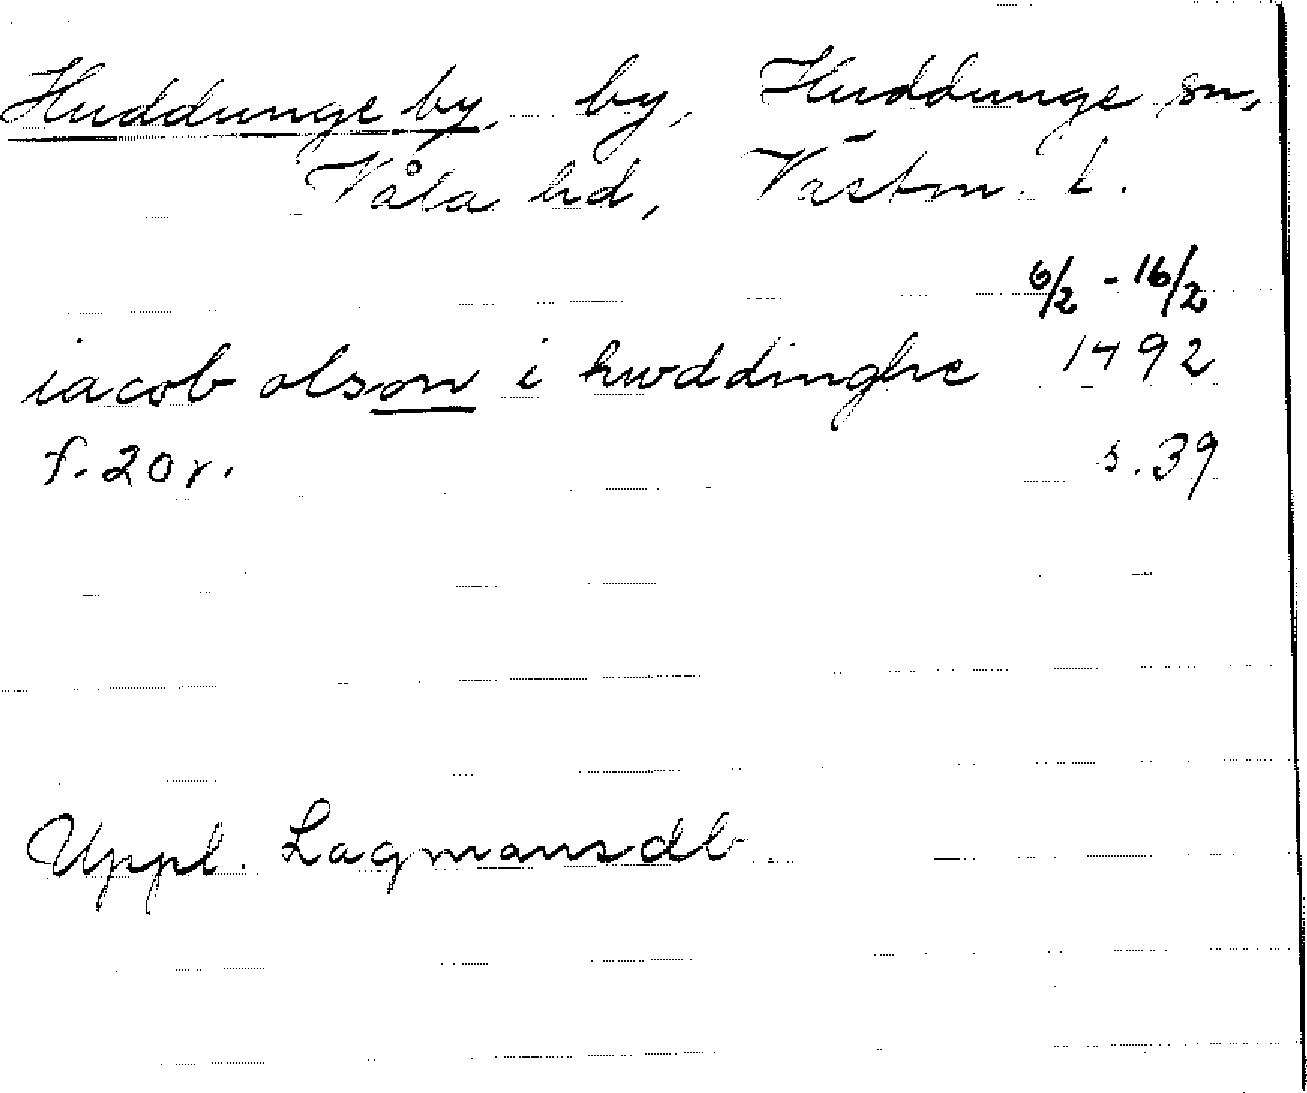 Huddunge by, by, Huddunge sn,
Våla hd, Västm. l.
6/2 - 16/2
iacob olson i hwddinghe 1492
f. 20 r. s. 39
Uppl. Lagmansdb